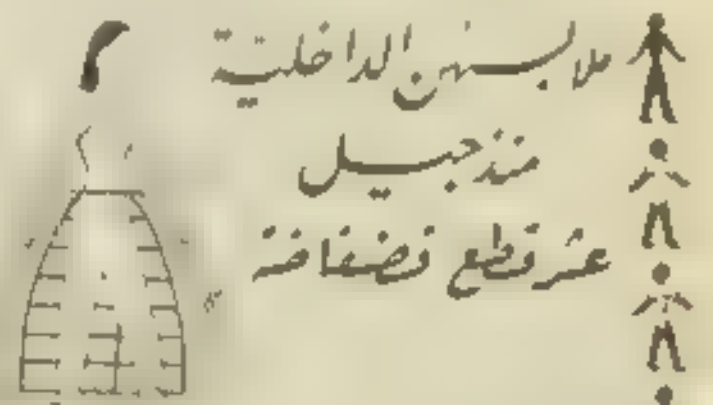 ملابسهن الداخلية
منذ جيل
عشر قطع فضفاضة